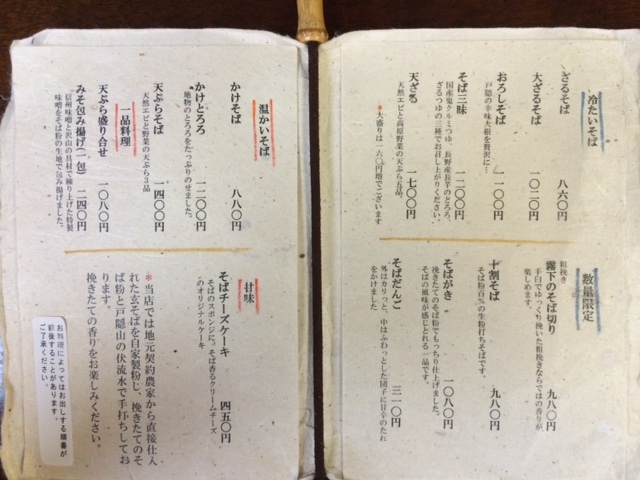 冷たいそば
ざるそば 八六〇円
大ざるそば 一〇二〇円
おろしそば 一一〇〇円
戸隠の辛味大根を贅沢に…
そば三昧 一二〇〇円
国産鬼クルミつゆ、長野産長芋のとろろ、
ざるつゆの三種でお召し上がりください。
天ざる 一七〇〇円
天然エビと高原野菜の天ぷら五品。
*大盛りは一六〇円増でございます
数量限定
粗挽き
霧下のそば切り 九八〇円
手臼でゆっくり挽いた粗挽きならではの香りが
楽しめます。
十割そば 九八〇円
そば粉百%の生粉打ちそばです。
そばがき 一〇八〇円
挽きたてのそば粉でもっちり仕上げました。
そばの風味が感じとれる一品です。
そばだんご 三一〇円
外はカリっと、中はふわっとした団子に甘辛のたれ
をかけました
温かいそば
かけそば 八八〇円
かけとろろ 一二〇〇円
地物のとろろをたっぷりのせました。
天ぷらそば 一四〇〇円
天然エビと野菜の天ぷら3品
一品料理
天ぷら盛り合せ 一〇八〇円
みそ包み揚げ(一包) 二四〇円
信州味噌と沢山の具材で練り上げた特製
味噌をそば粉の生地で包み揚げました。
甘味
そばチーズケーキ 四五〇円
そばのスポンジに。そば香るクリームチーズ
のオリジナルケーキ。
*当店では地元契約農家から直接仕入
れた玄そばを自家製粉し、挽きたてのそ
ば粉と戸隠山の伏流水で手打ちしてお
ります。
挽きたての香りをお楽しみください。
お料理によってはお出しする順番が
前後することがあります。
ご了承ください。